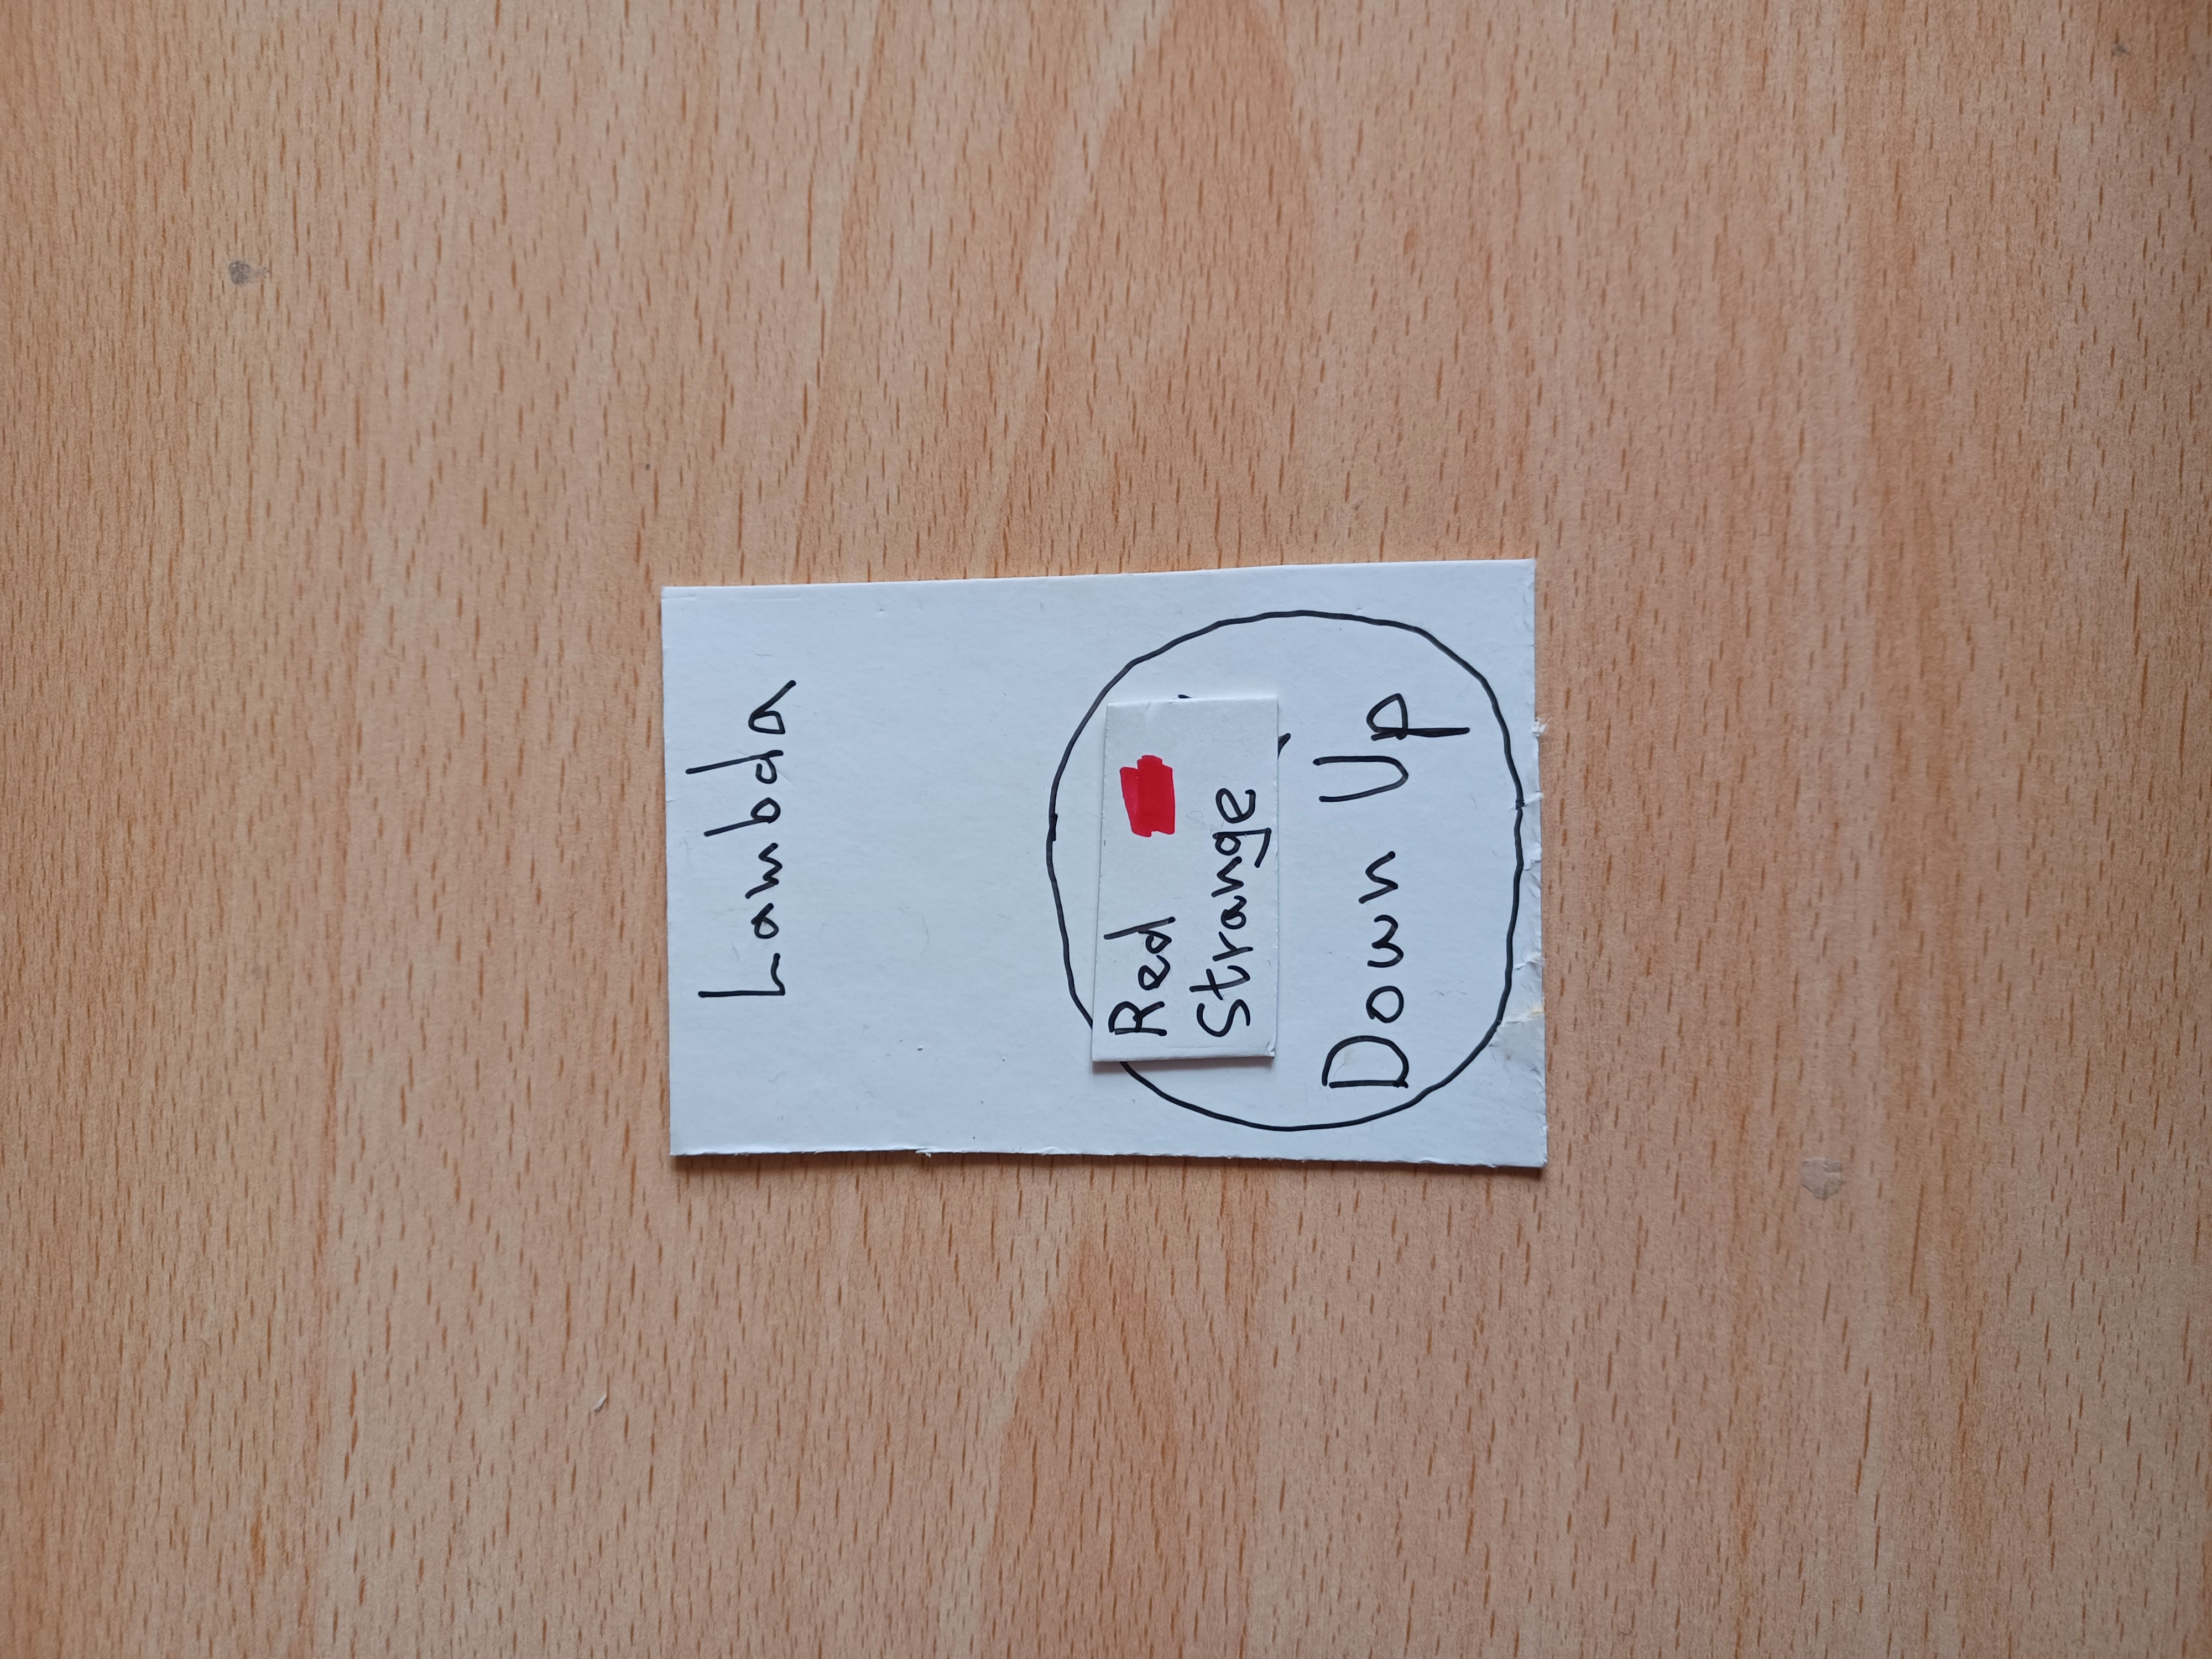 Lambda
Red
Strange
Down Up